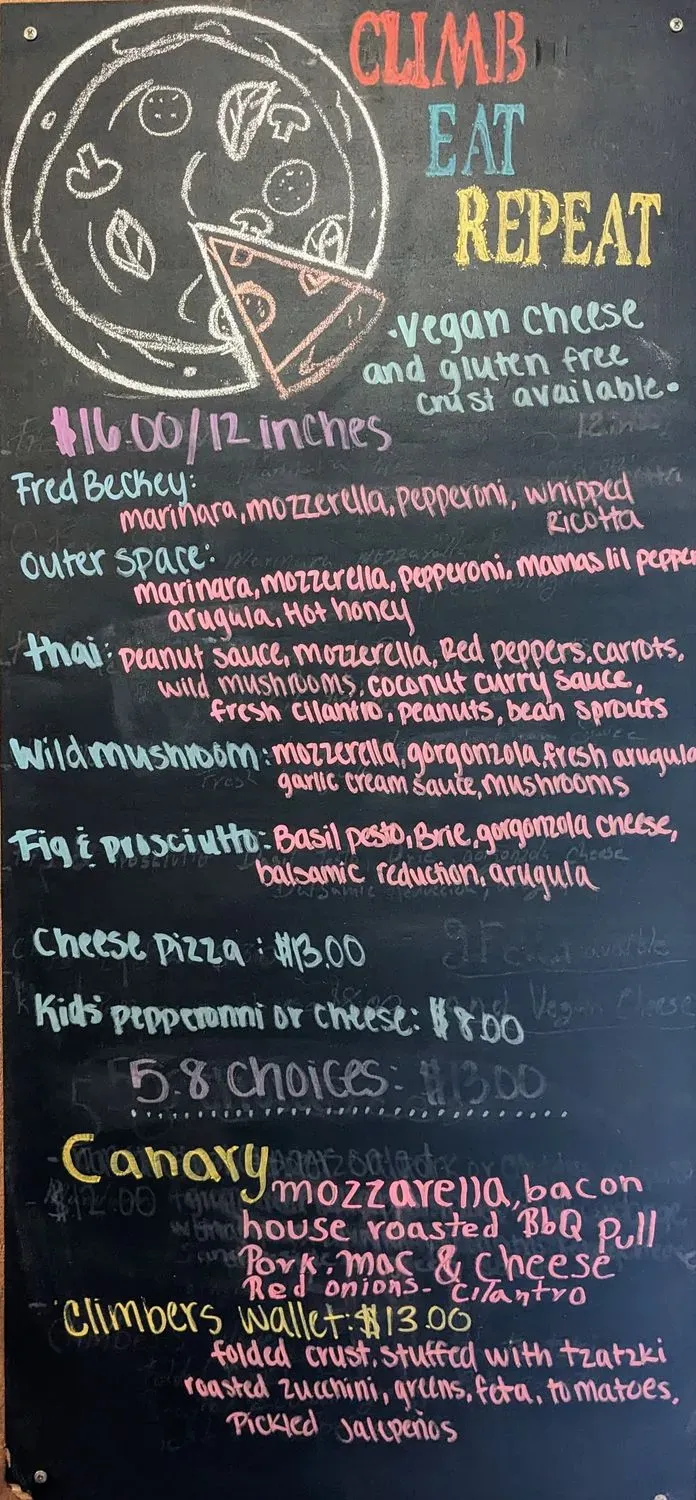 CLIMB
EAT
REPEAT
·Vegan cheese
and gluten free
crust available·
$16.00/12 inches
Fred Beckey:
marinara, mozzerella, pepperoni, whipped
Ricotta
outer space:
marinara, mozzerella, pepperoni, mamas lil pepper
arugula, Hot honey
thai: peanut sauce, mozzerella, Red peppers, carrots,
wild mushrooms, coconut curry sauce,
fresh cilantro, peanuts, bean sprouts
Wild mushroom: mozzerella, gorgonzola, fresh arugula
garlic cream sauce, mushrooms
Fig & prosciutto: Basil pesto, Brie, gorgonzola cheese,
balsamic reduction, arugula
Cheese pizza: $13.00
Kids pepperonni or cheese: $8.00
5.8 choices: $13.00
Canary
mozzarella, bacon
house roasted BbQ pull
Pork, mac & cheese
Red onions - cilantro
Climbers wallet: $13.00
folded crust, stuffed with tzatzki
roasted zucchini, greens, feta, tomatoes,
Pickled Jalepeños